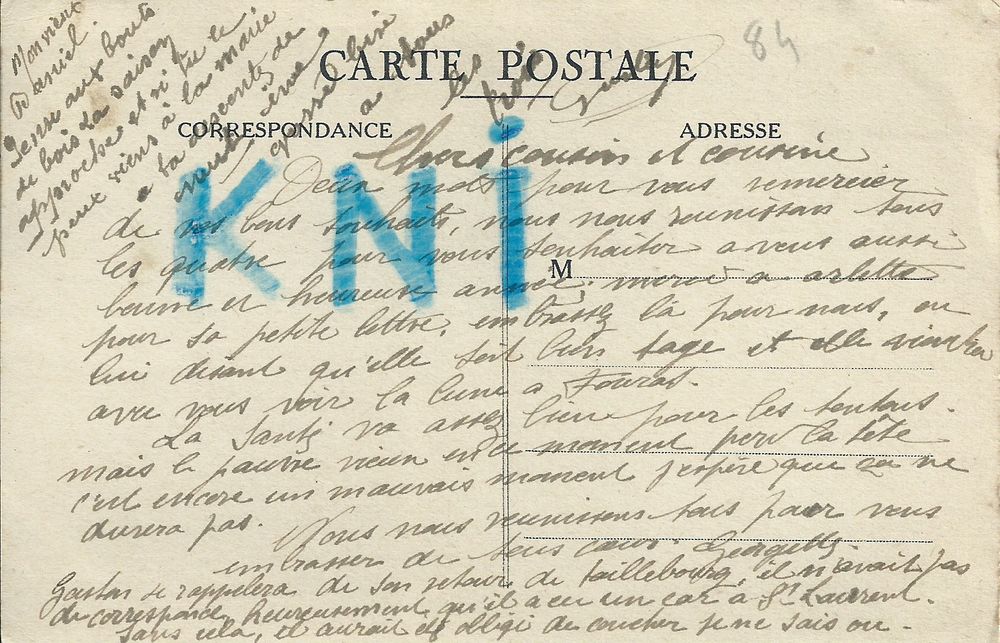 CARTE POSTALE
CORRESPONDANCE
ADRESSE
84
KNi
M
Chers cousin et cousine
Deux mots pour vous remercier
de vos bons souhaits, nous nous reunissons tous
les quatre pour vous souhaiter a vous aussi
bonne et heureuse année, merci a arlette
pour sa petite lettre, embrassez la pour nous, en
lui disant qu'elle soit bien sage et elle viendra
avec vous voir la lune a Fouras.
La santé va assez bien pour les tontons.
mais le pauvre vieux en ce moment perd la tête
c'est encore un mauvais moment j'espère que ça ne
durera pas.
Nous nous reunissons tous pour vous
embrasser de tous cœur. Georgette
Gaston se rappelera de son retour de taillebourg, il n'avait pas
de correspondance, heureusement qu'il a eu un car a St Laurent.
Sans cela, il aurait été obligé de coucher je ne sais ou.
Monsieur
Daniel
aux bouts
de bois La saison
approche et si tu le
peux viens à la marie
a la descente de
nuit
a tous
les trois